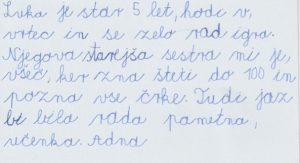 Luka je star 5 let, hodi v,
vrtec in se zelo rad igra.
Njegova starejša sestra mi je,
všeč, ker zna šteti do 100 in
pozna vse črke. Tudi jaz
bi bila rada pametna,
učenka. Adna